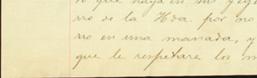 que haya en sus
rro de la Hda. por no
rro en una manada, y
que le respetare los